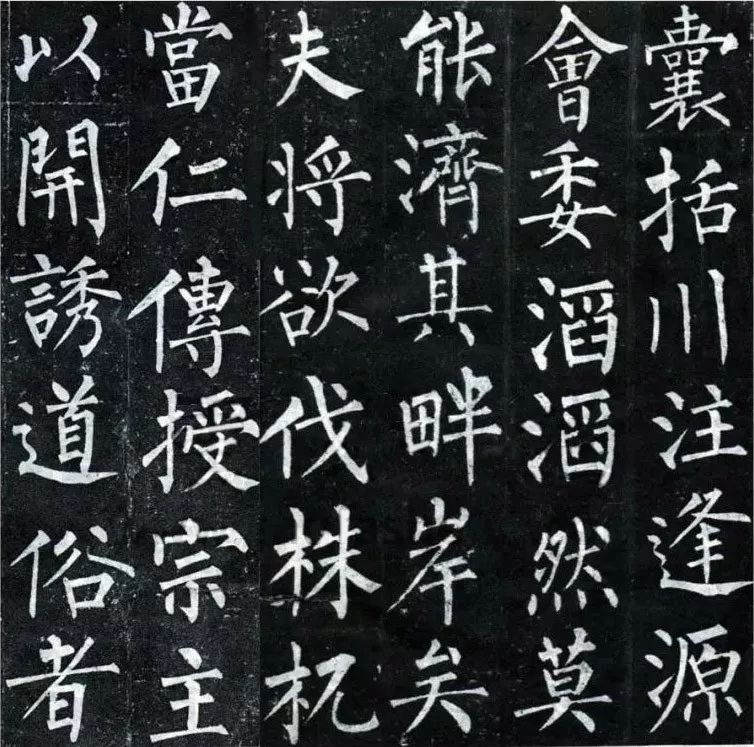 囊括川注逢源
會委滔滔然莫
能濟其畔岸矣
夫將欲伐株杌
當仁傳授宗主
以開誘道俗者